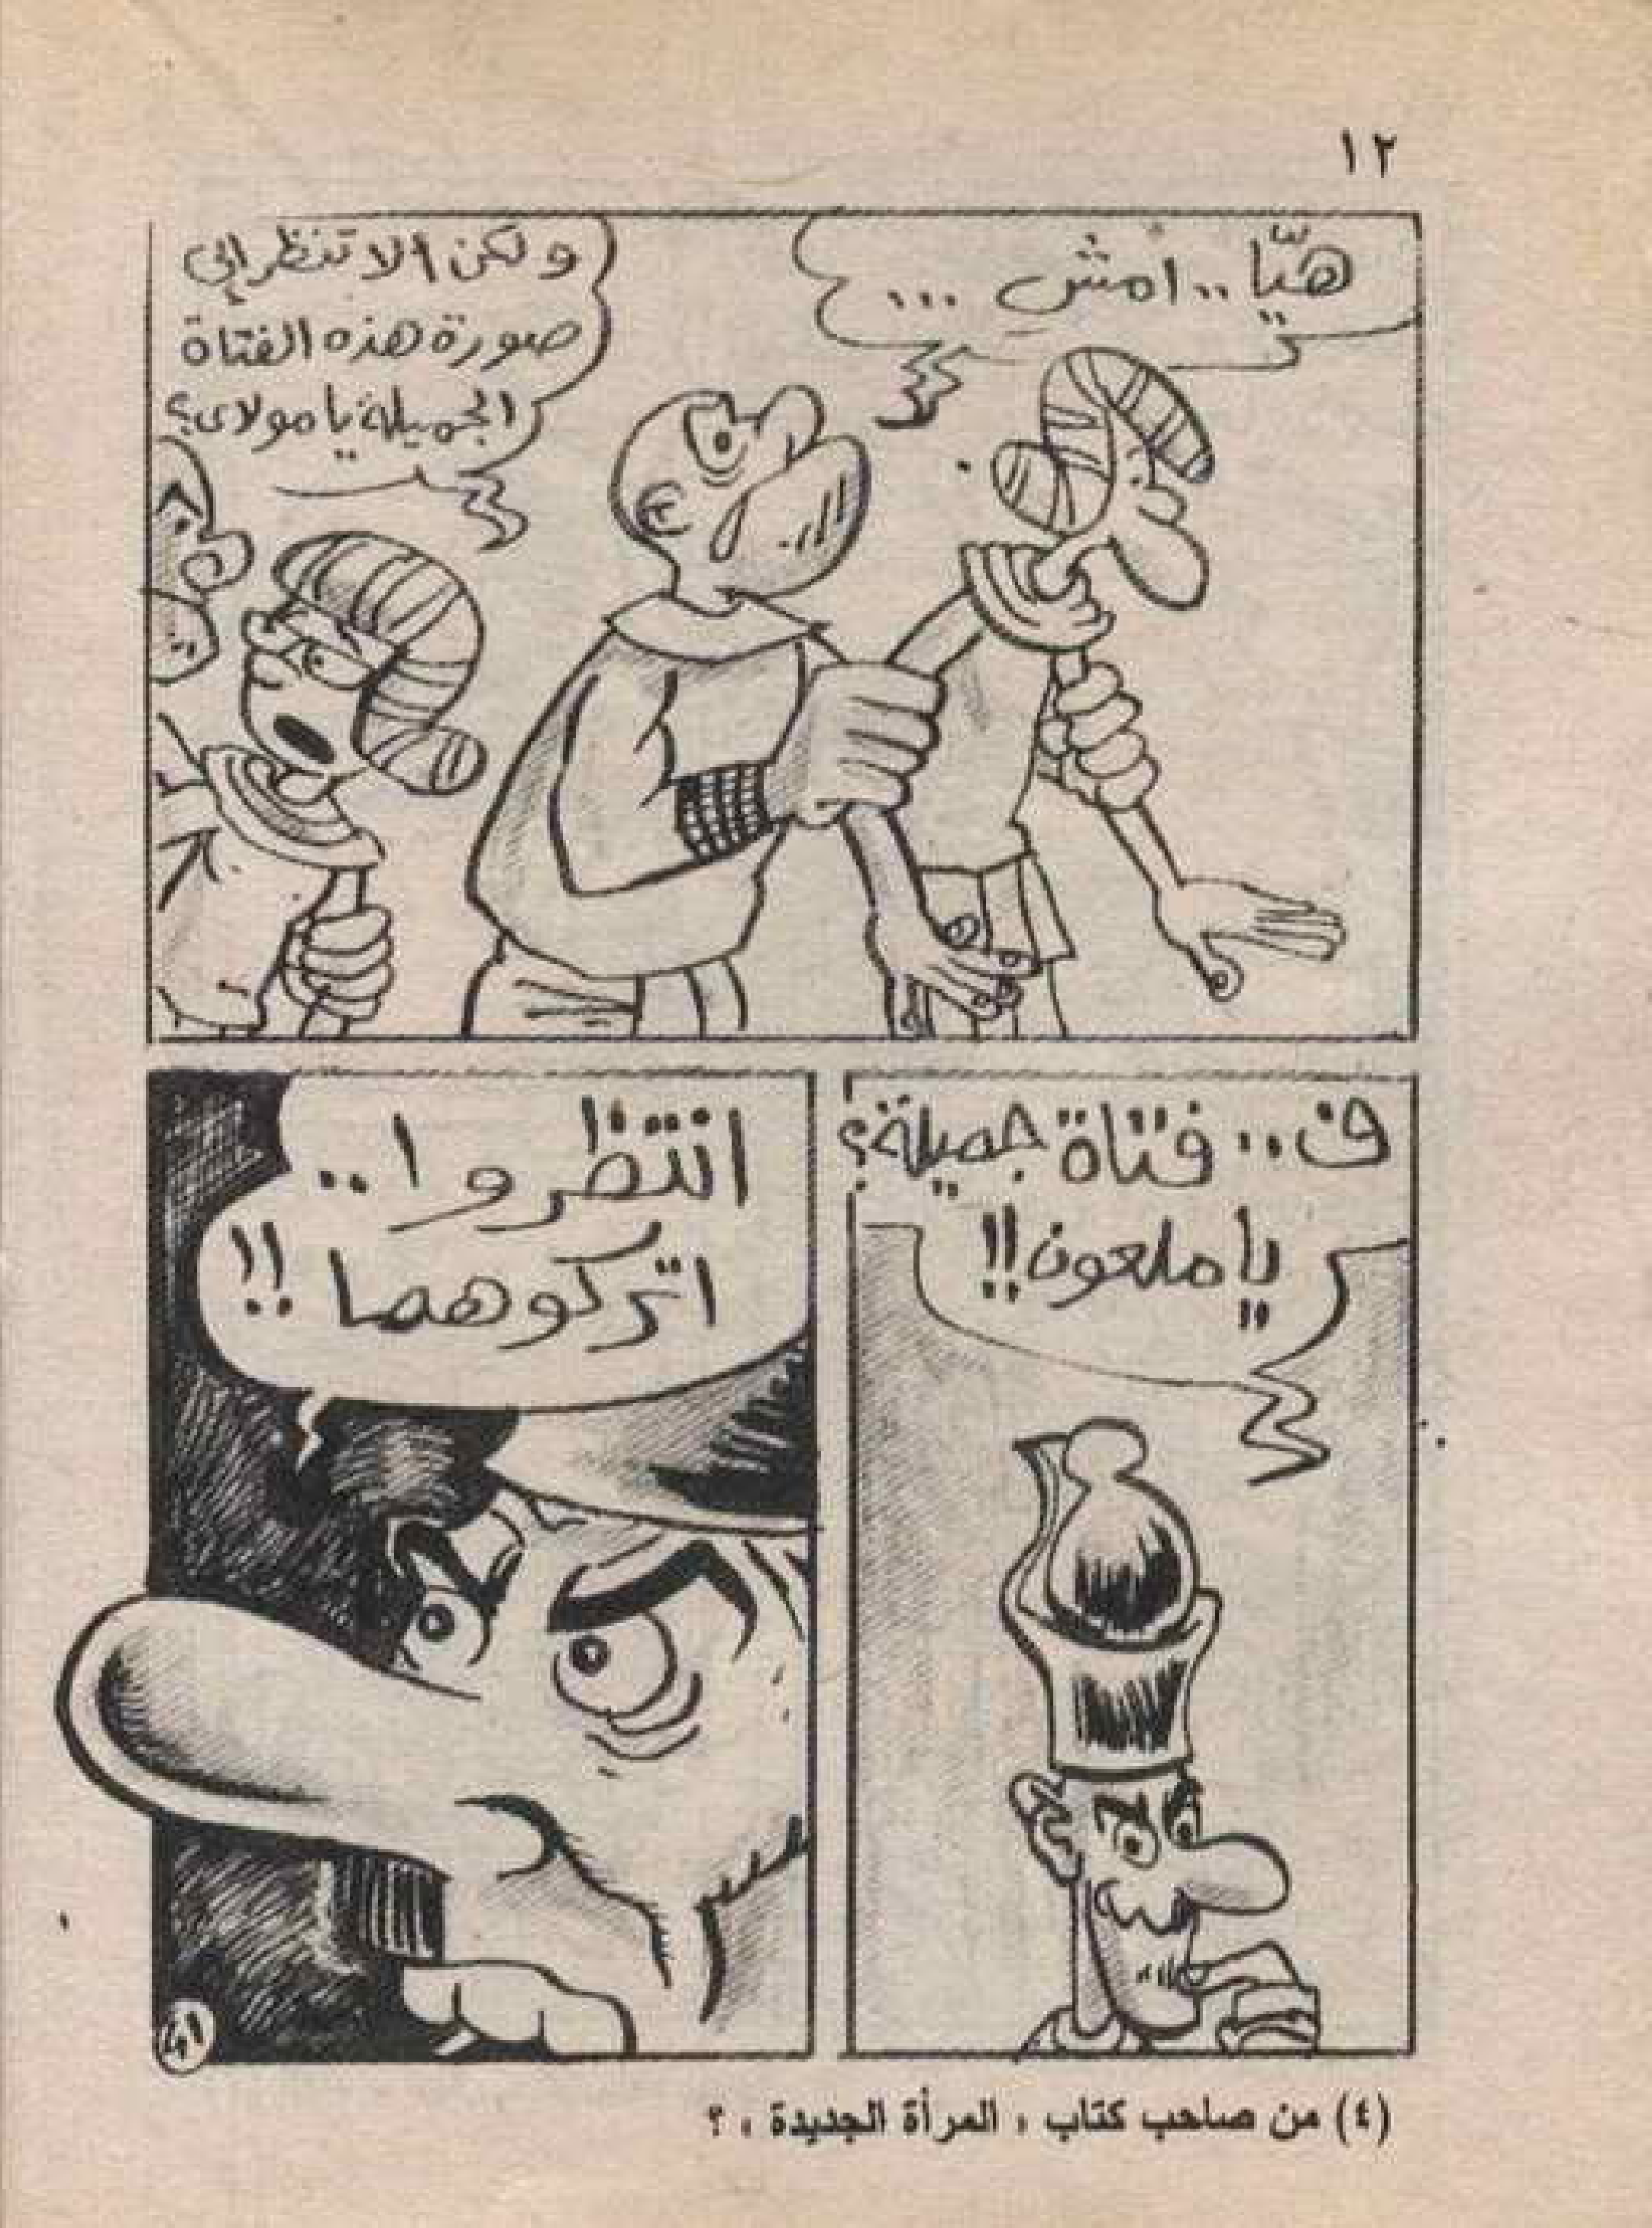 ١٢
هيّا.. امش ...
ولكن ألا تنظر إلى
صورة هذه الفتاة
الجميلة يا مولاى؟
ف.. فتاة جميلة؟
يا ملعون!!
انتظروا..
اتركوهما!!
(٤) من صاحب كتاب « المرأة الجديدة » ؟